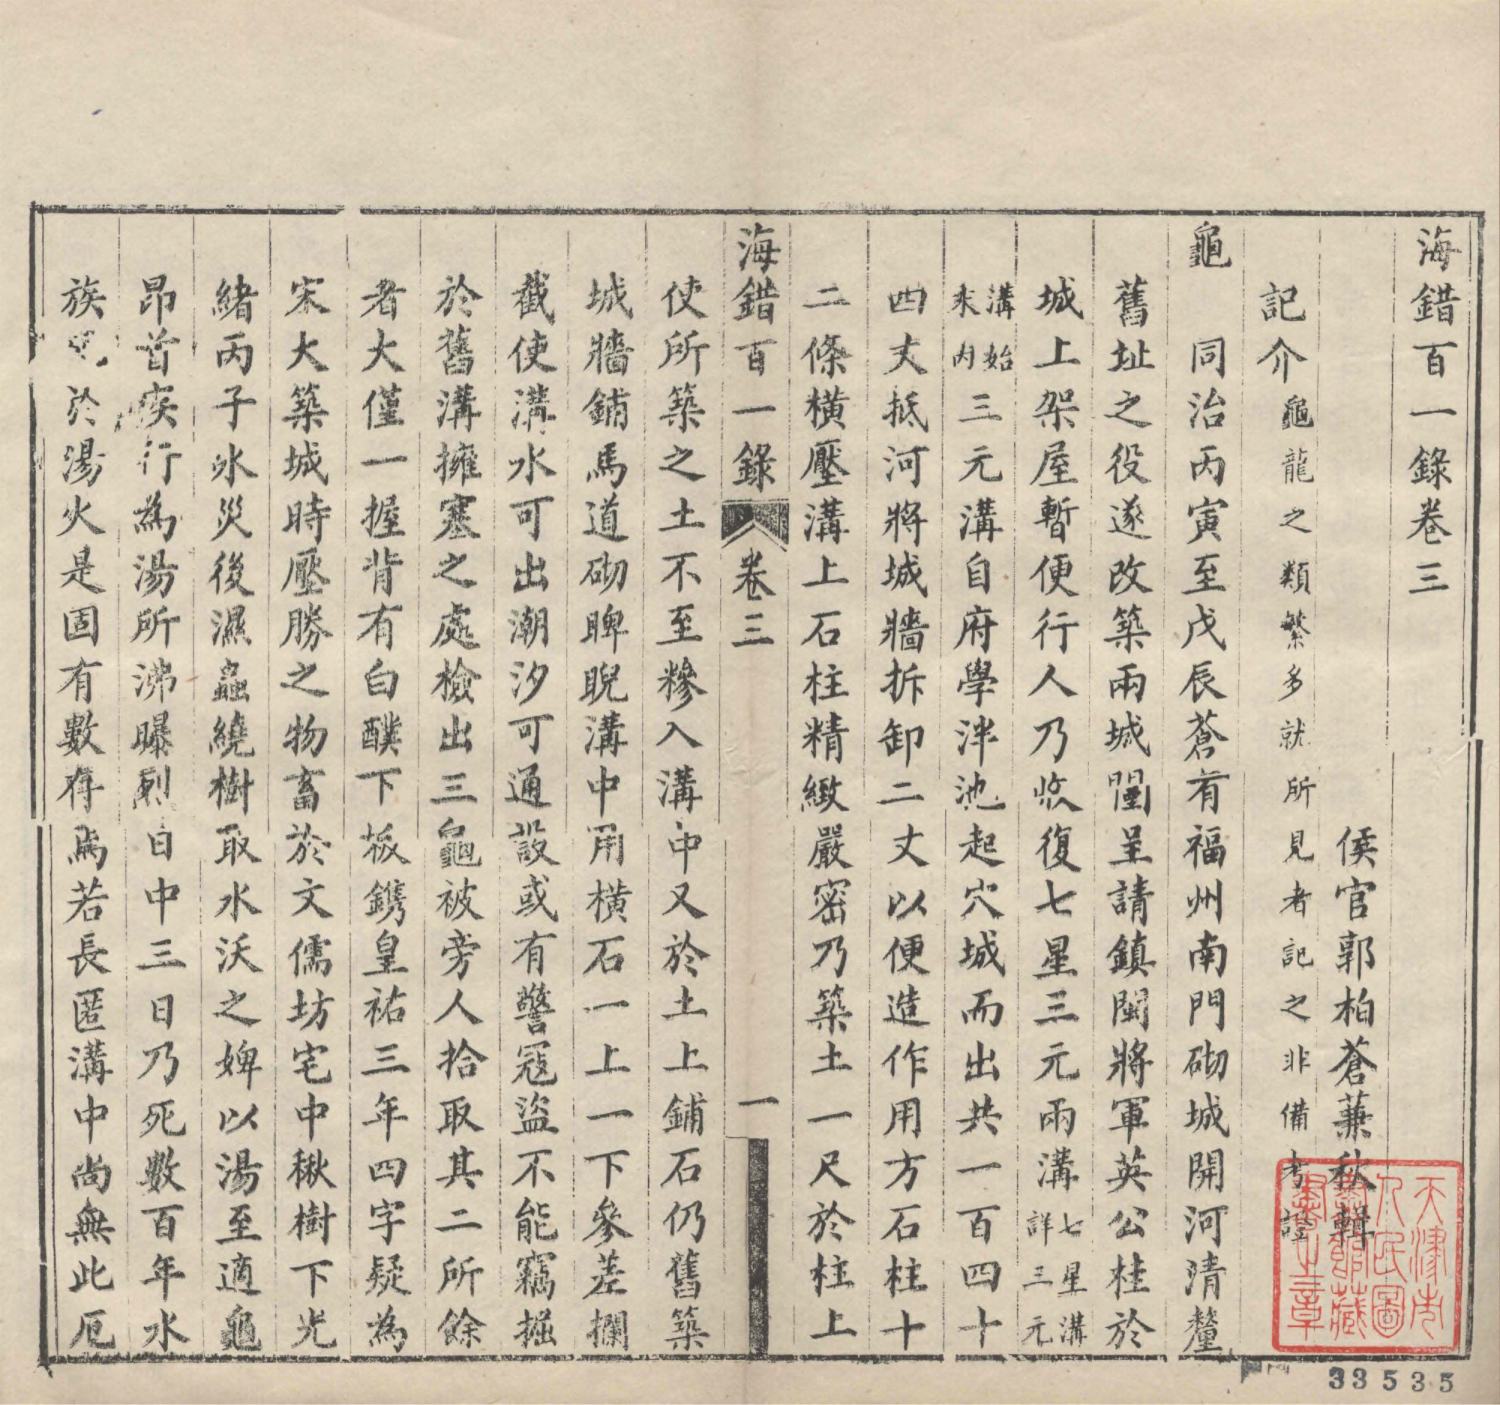 海錯百一錄卷三
侯官郭柏蒼蒹秋輯
記介龜龍之類繁多就所見者記之非備考證
龜
同治丙寅至戊辰蒼有福州南門砌城開河清釐
舊址之役遂改築兩城闉呈請鎮閩將軍英公桂於
城上架屋暫便行人乃收復七星三元兩溝七星溝詳三元
溝始末內三元溝自府學泮池起穴城而出共一百四十
四丈抵河將城牆拆卸二丈以便造作用方石柱十
二條橫壓溝上石柱精緻嚴密乃築土一尺於柱上
海錯百一錄 卷三 一
使所築之土不至糝入溝中又於土上鋪石仍舊築
城牆鋪馬道砌睥睨溝中用橫石一上一下參差攔
截使溝水可出潮汐可通設或有警寇盜不能竊掘
於舊溝擁塞之處檢出三龜被旁人拾取其二所餘
者大僅一握背有白醭下板鐫皇祐三年四字疑為
宋大築城時壓勝之物畜於文儒坊宅中楸樹下光
緒丙子水災後濕蟲繞樹取水沃之婢以湯至適龜
昂首疾行為湯所沸曝烈日中三日乃死數百年水
族 於湯火是固有數存焉若長匿溝中尚無此厄
天津市人民圖書館藏書之章
33535